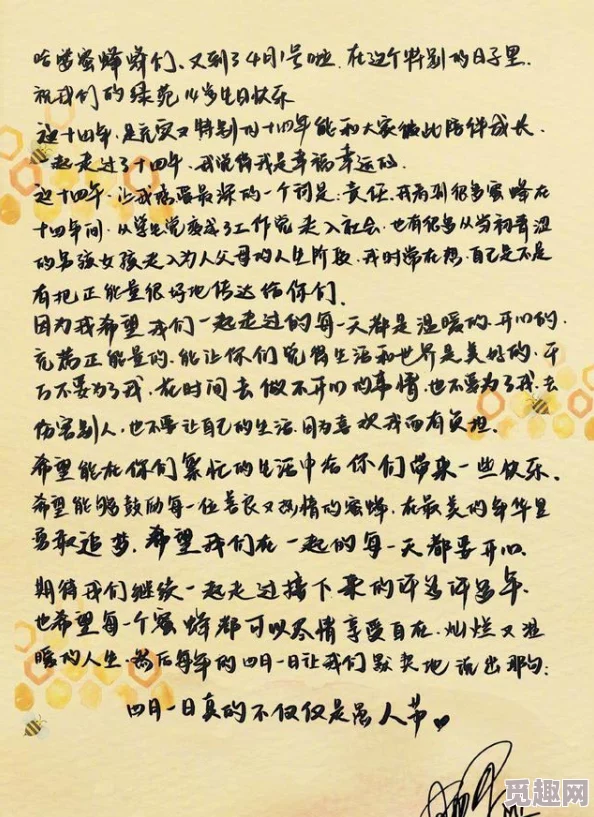 哈啰蜜蜂蜂们、又到了4月1号啦.在这个特别的日子里.
祝我们的绿苑14岁生日快乐
这十四年.是充实又特别的十四年能和大家彼此陪伴成长.
一起走过了十四年.我觉得我是幸福幸运的.
这十四年.让我感受最深的一个词是:责任.我看到很多蜜蜂在
十四年间.从学生党变成了工作党走入社会.也有很多从当初青涩
的男孩女孩走入为人父母的人生阶段.我时常在想.自己是不是
有把正能量很好地传达给你们.
因为我希望我们一起走过的每一天都是温暖的.开心的.
充满正能量的.能让你们觉得生活和世界是美好的.千
万不要为了我.花时间去做不开心的事情.也不要为了我.去
伤害别人,也不要让自己的生活.因为喜欢我而有负担.
希望能在你们繁忙的生活中给你们带来一些快乐.
希望能够鼓励每一位善良又热情的蜜蜂.在最美的年华里
勇敢追梦.希望我们在一起的每一天都要开心.
期待我们继续一起走过接下来的许多许多年.
也希望每一个蜜蜂都可以尽情享受自在.灿烂又温
暖的人生.然后每年的四月一日让我们默契地说出那句:
四月一日真的不仅仅是愚人节
觅趣网